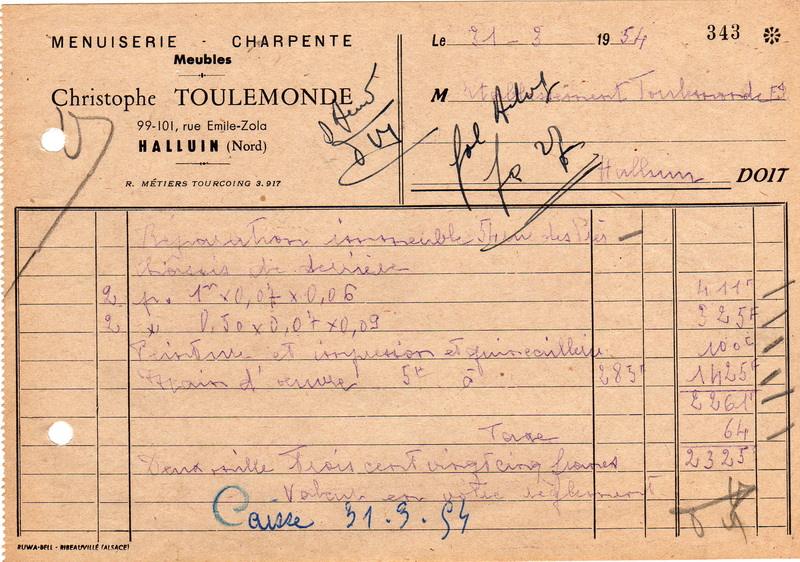 MENUISERIE - CHARPENTE
Meubles
Christophe TOULEMONDE
99-101, rue Emile-Zola
HALLUIN (Nord)
R. MÉTIERS TOURCOING 3.917
Le 31 - 3 1954
343
M Etablissement Toulemonde
Halluin DOIT
Réparation immeuble 54 rue des Prés
Châssis de derrière
2 p. 1m x 0,07 x 0,06 411
2 0,50 x 0,07 x 0,09 325F
Peinture et impression et quincaillerie 100F
Main d'oeuvre 5h à 283F 1425F
2261
Taxe 64
Deux mille trois cent vingt cinq francs 2325
Valeur en votre règlement
Caisse 31.3.54
RUWA-BELL - RIBEAUVILLÉ (ALSACE)